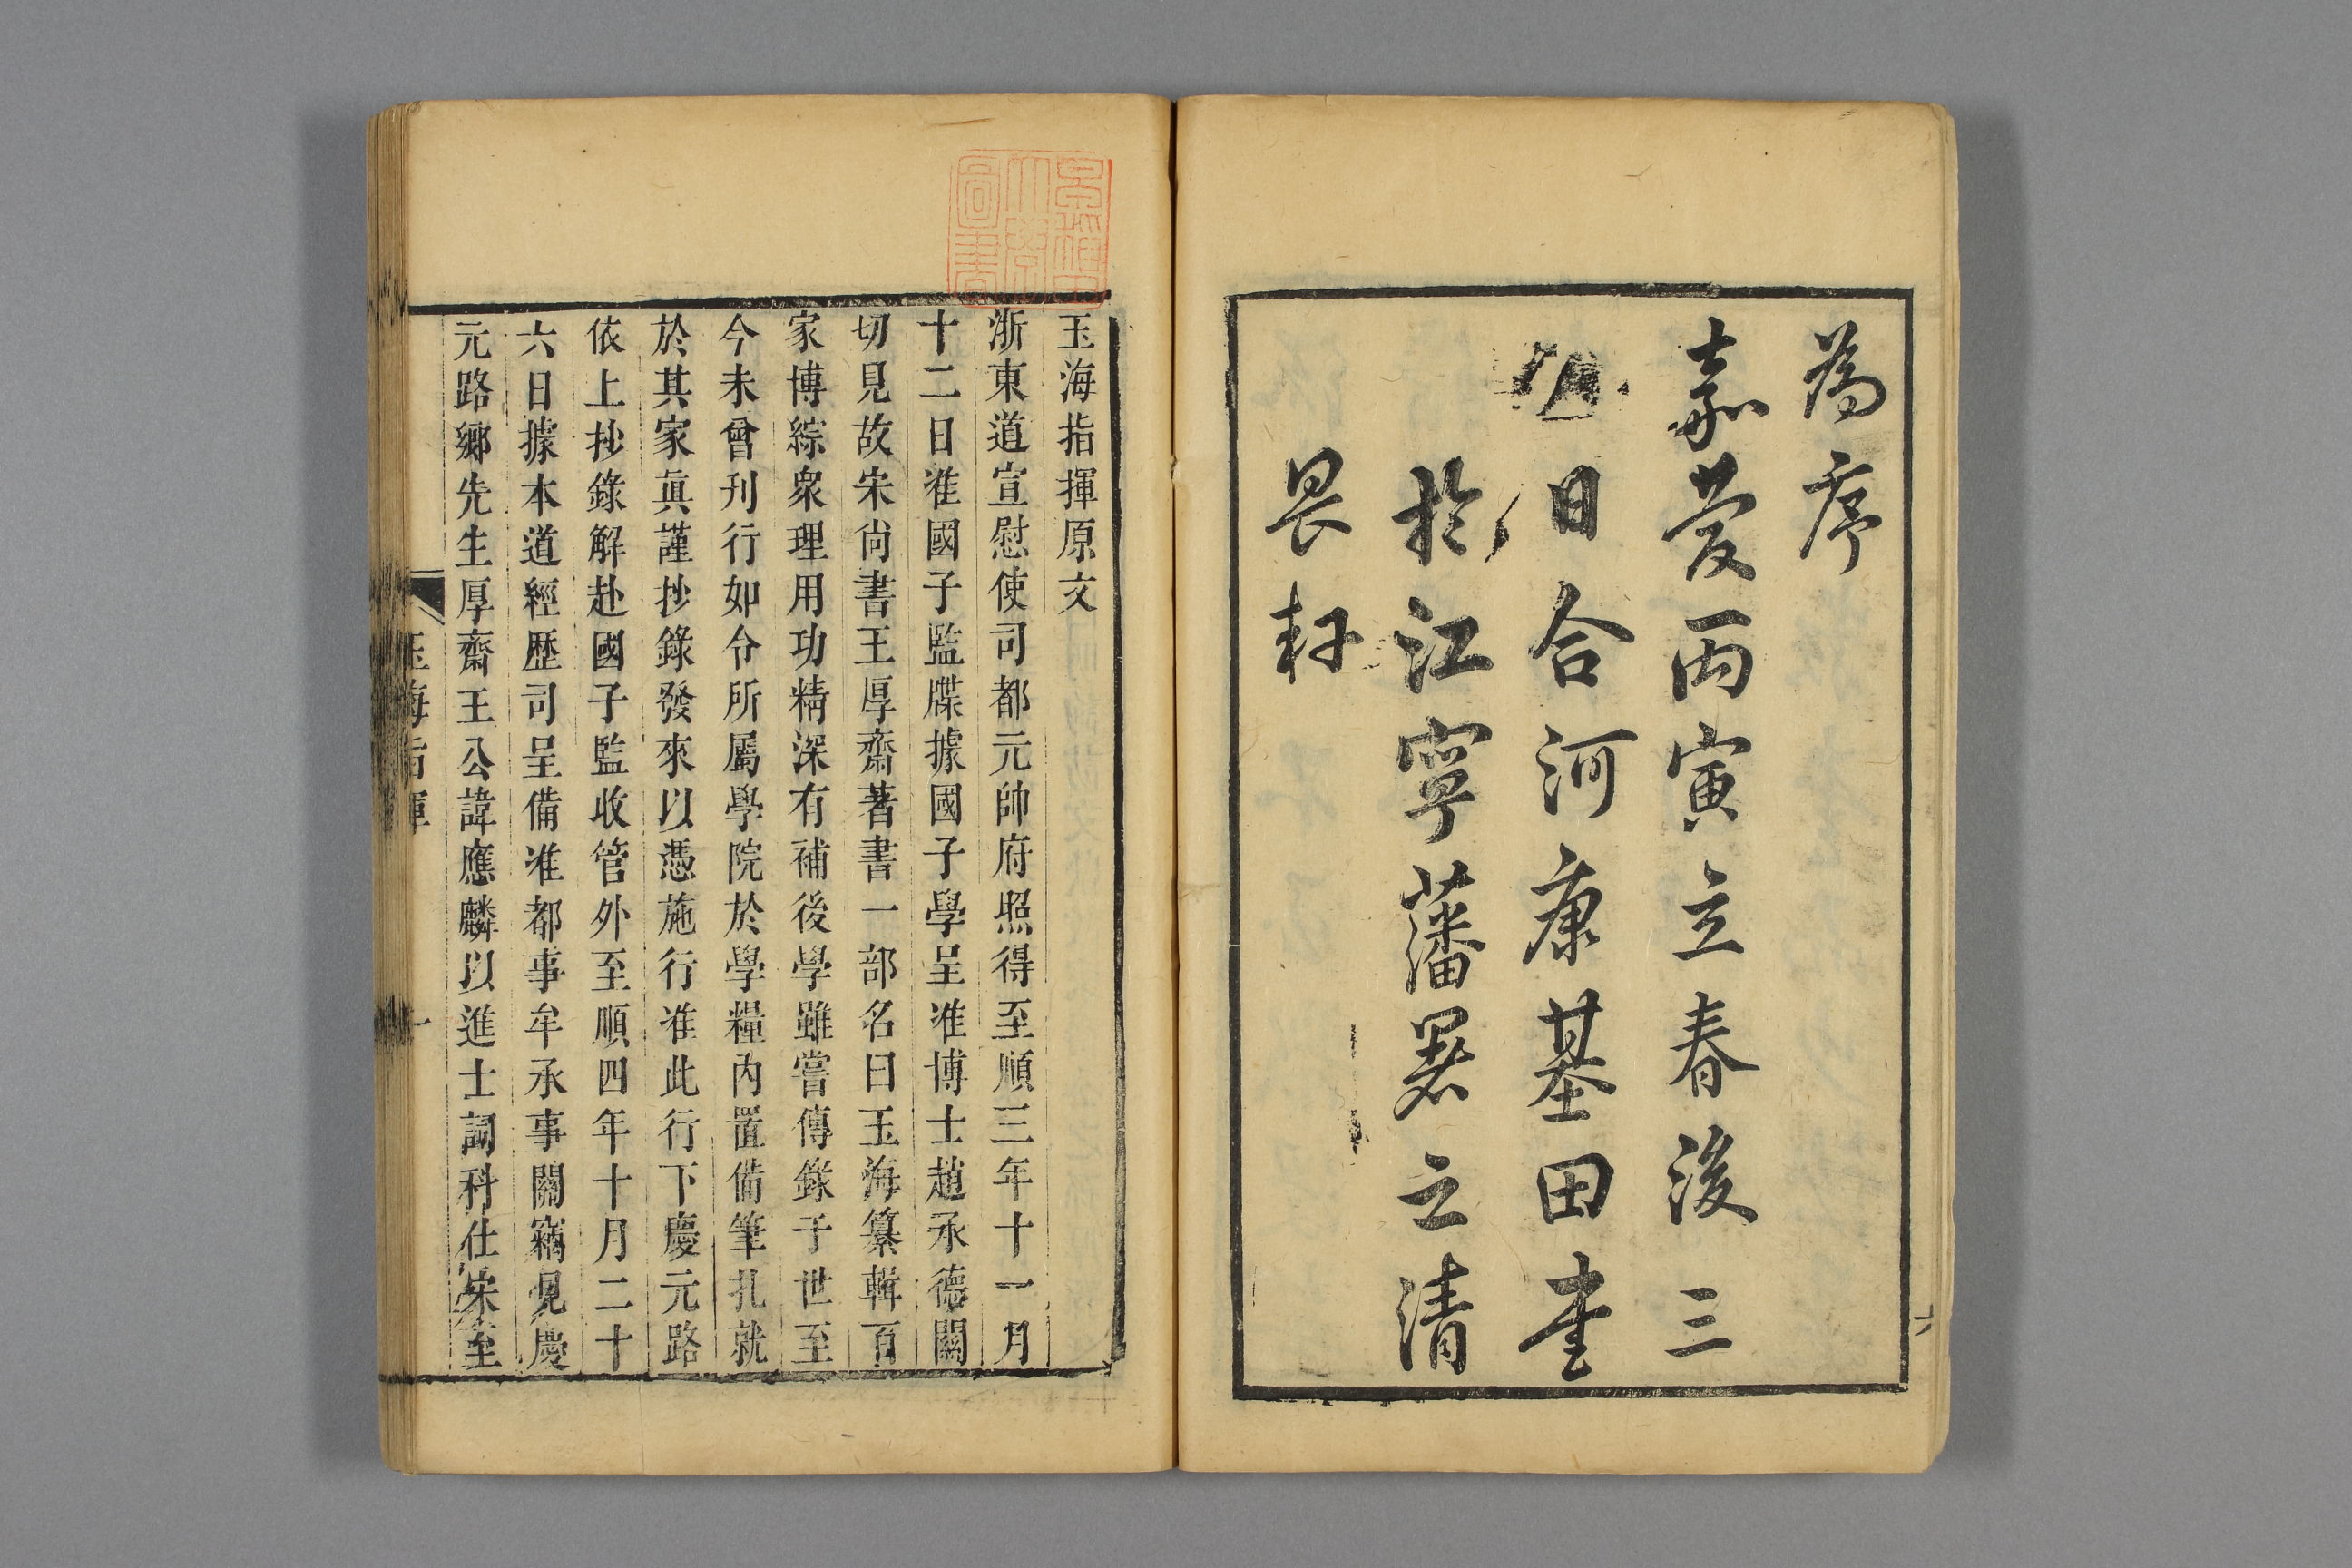 為序
嘉慶丙寅立春後三
日合河康基田書
於江寧藩署之清
畏軒
玉海指揮原文
浙東道宣慰使司都元帥府照得至順三年十一月
十二日准國子監牒據國子學呈准博士趙承德關
切見故宋尚書王厚齋著書一部名曰玉海纂輯百
家博綜衆理用功精深有補後學雖嘗傳錄于世至
今未曾刊行如令所屬學院於學糧內置備筆扎就
於其家眞謹抄錄發來以憑施行准此行下慶元路
依上抄錄解赴國子監收管外至順四年十月二十
六日據本道經歷司呈備准都事牟承事關竊見慶
元路鄉先生厚齋王公諱應麟以進士詞科仕宋至
玉海指揮
一